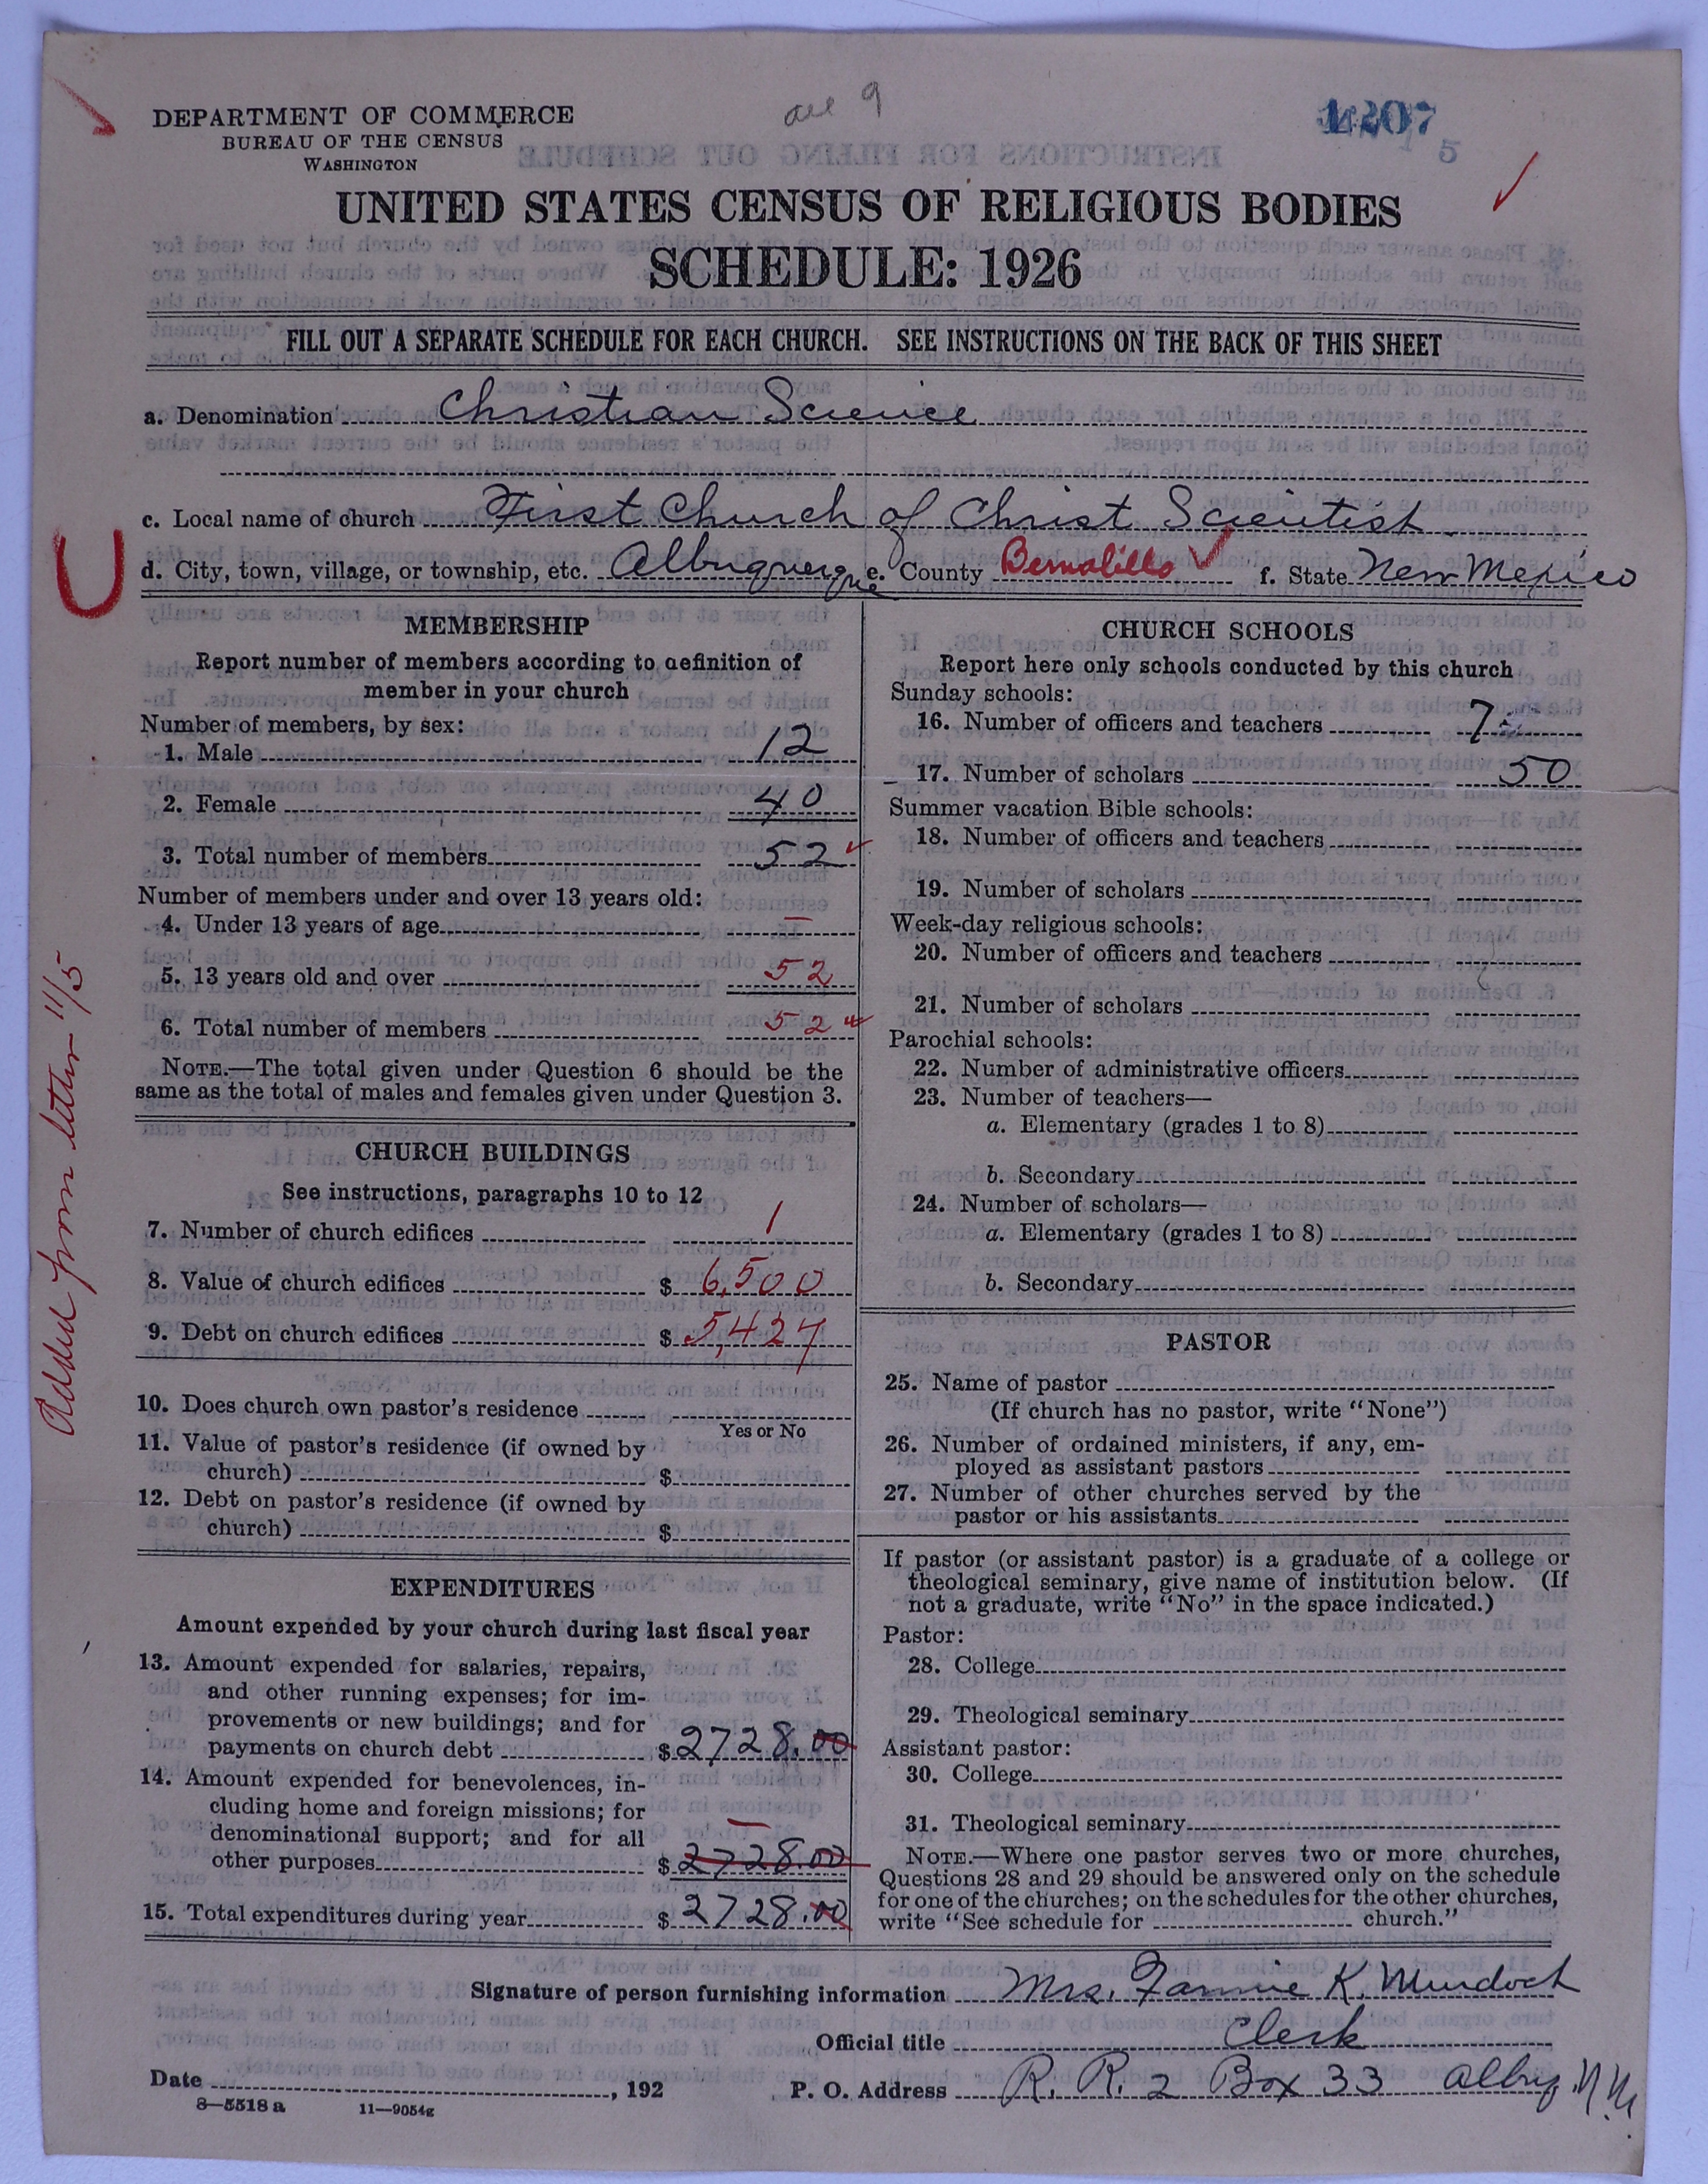 DEPARTMENT OF COMMERCE
BUREAU OF THE CENSUS
WASHINGTON
UNITED STATES CENSUS OF RELIGIOUS BODIES
SCHEDULE: 1926
FILL OUT A SEPARATE SCHEDULE FOR EACH CHURCH. SEE INSTRUCTIONS ON THE BACK OF THIS SHEET
a. Denomination Christian Science
c. Local name of church First Church of Christ Scientist
d. City, town, village, or township, etc. Albuquerque e. County Bernalillo f. State New Mexico
Added from letter 11/5
MEMBERSHIP
Report number of members according to definition of
member in your church
Number of members, by sex:
1. Male 12
2. Female 40
3. Total number of members 52
Number of members under and over 13 years old:
4. Under 13 years of age —
5. 13 years old and over 52
6. Total number of members 52
NOTE.—The total given under Question 6 should be the
same as the total of males and females given under Question 3.
CHURCH BUILDINGS
See instructions, paragraphs 10 to 12
7. Number of church edifices 1
8. Value of church edifices $ 6,500
9. Debt on church edifices $ 5,427
10. Does church own pastor's residence
Yes or No
11. Value of pastor's residence (if owned by
church) $
12. Debt on pastor's residence (if owned by
church) $
EXPENDITURES
Amount expended by your church during last fiscal year
13. Amount expended for salaries, repairs,
and other running expenses; for im-
provements or new buildings; and for
payments on church debt $ 2728.00
14. Amount expended for benevolences, in-
cluding home and foreign missions; for
denominational support; and for all
other purposes $ 2728.00
15. Total expenditures during year $ 2728.00
CHURCH SCHOOLS
Report here only schools conducted by this church
Sunday schools:
16. Number of officers and teachers 7
17. Number of scholars 50
Summer vacation Bible schools:
18. Number of officers and teachers
19. Number of scholars
Week-day religious schools:
20. Number of officers and teachers
21. Number of scholars
Parochial schools:
22. Number of administrative officers
23. Number of teachers—
a. Elementary (grades 1 to 8)
b. Secondary
24. Number of scholars—
a. Elementary (grades 1 to 8)
b. Secondary
PASTOR
25. Name of pastor
(If church has no pastor, write "None")
26. Number of ordained ministers, if any, em-
ployed as assistant pastors
27. Number of other churches served by the
pastor or his assistants
If pastor (or assistant pastor) is a graduate of a college or
theological seminary, give name of institution below. (If
not a graduate, write "No" in the space indicated.)
Pastor:
28. College
29. Theological seminary
Assistant pastor:
30. College
31. Theological seminary
NOTE.—Where one pastor serves two or more churches,
Questions 28 and 29 should be answered only on the schedule
for one of the churches; on the schedules for the other churches,
write "See schedule for church."
Signature of person furnishing information Mrs. Fannie K. Murdoch
Official title Clerk
Date , 192 P. O. Address R. R. 2 Box 33 Albuq. N.M.
8—5518 a 11—9054g